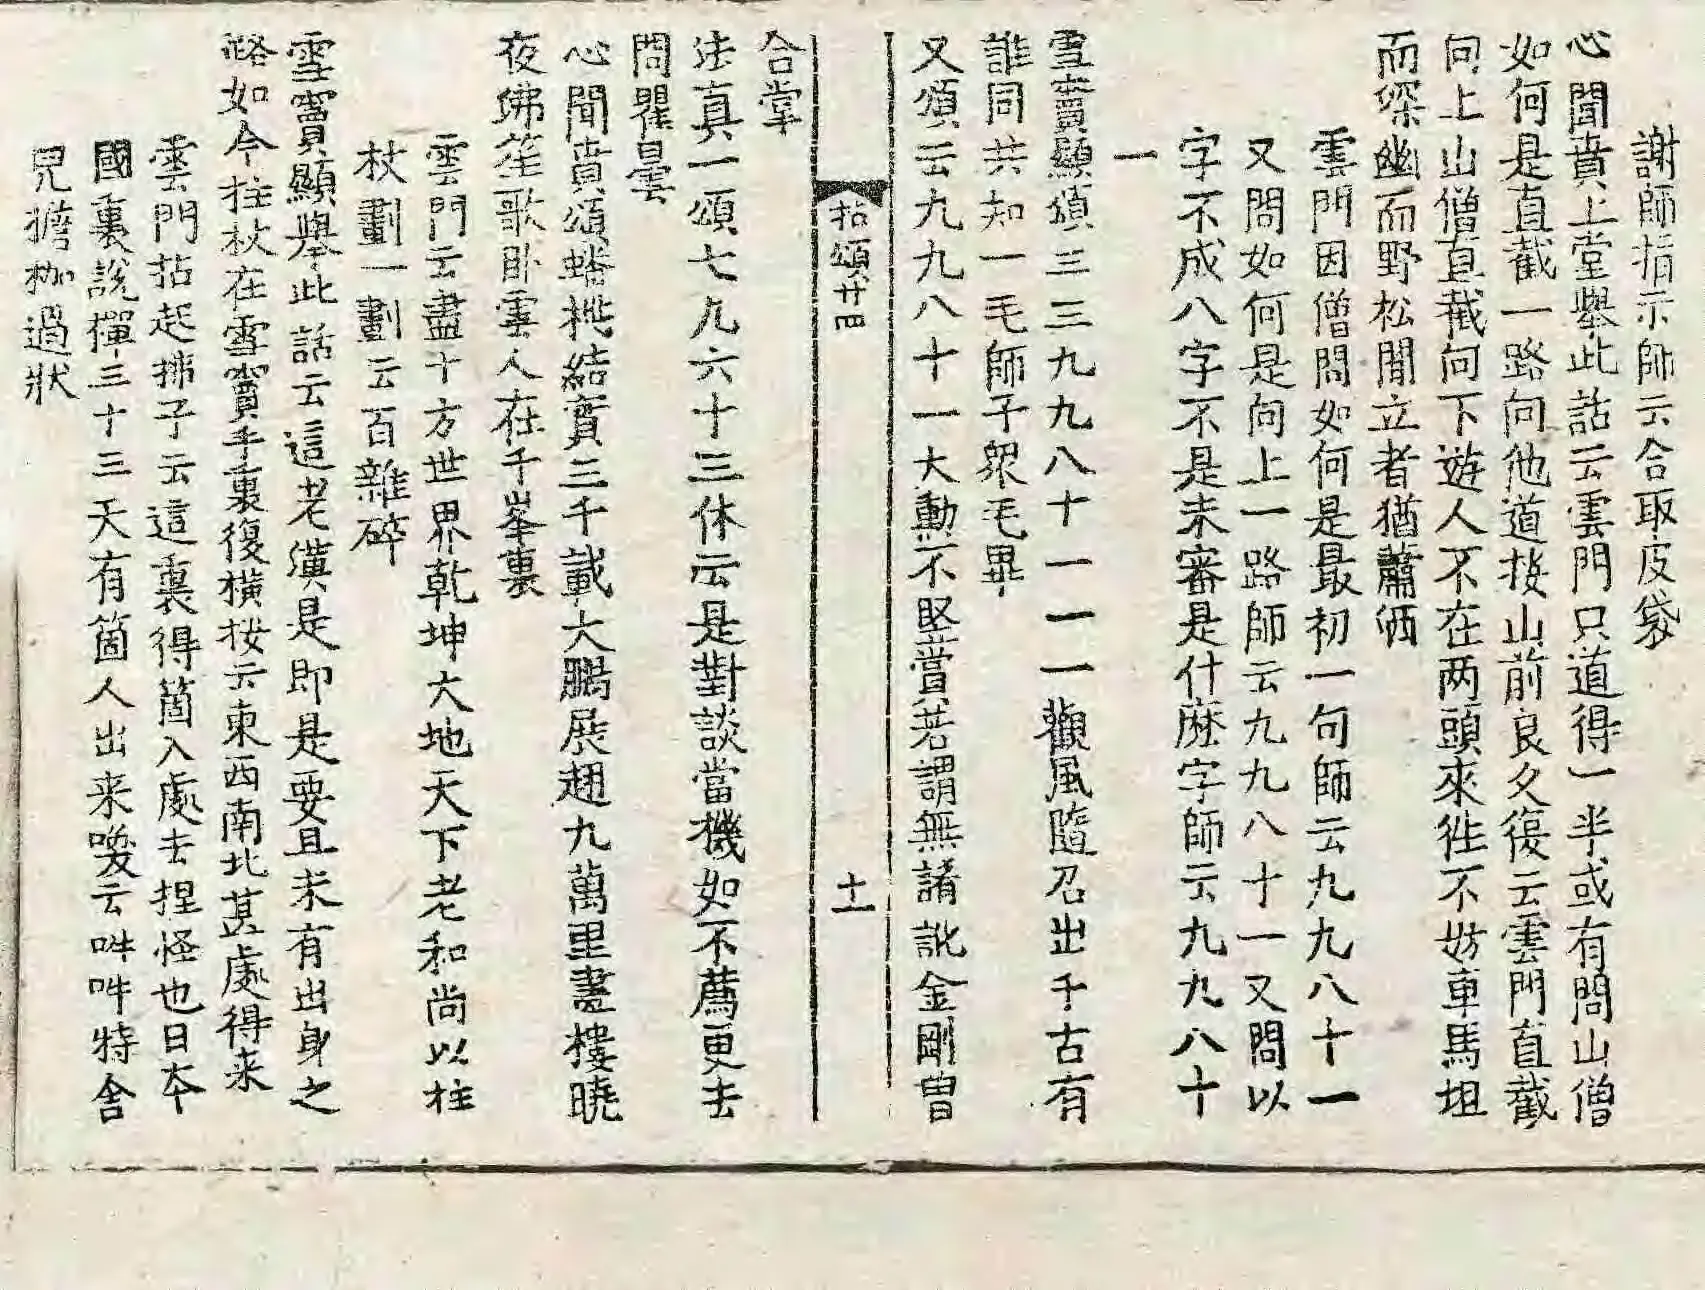 謝師指示師云合取皮袋
心聞賁上堂舉此話云雲門只道得一半或有問山僧
如何是直截一路向他道接山前良久復云雲門直截
向上山僧直截向下遊人不在两頭來徃不妨車馬坦
而深幽而野松間立者猶蕭洒
雲門因僧問如何是最初一句師云九九八十一
又問如何是向上一路師云九九八十一又問以
字不成八字不是未審是什麽字師云九九八十
一
雪竇顯頌三三九九八十一一一一觀風隨召出千古有
誰同共知一毛師子衆毛畢
又頌云九九八十一大勳不竪賞若謂無誵訛金剛曽
拈頌廿四
十一
合掌
法真一頌七九六十三休云是對談當機如不薦更去
問瞿曇
心聞賁頌蟠桃結實三千載大鵬展翅九萬里畫樓曉
夜沸笙歌卧雲人在千峯裏
雲門云盡十方世界乾坤大地天下老和尚以柱
杖劃一劃云百雜碎
雪竇顯舉此話云這老漢是即是要且未有出身之
路如今拄杖在雪竇手裏復横按云東西南北甚處得来
雲門拈起拂子云這裏得箇入處去捏怪也日夲
國裏說禪三十三天有箇人出来喚云吽吽特舍
兒擔枷過狀